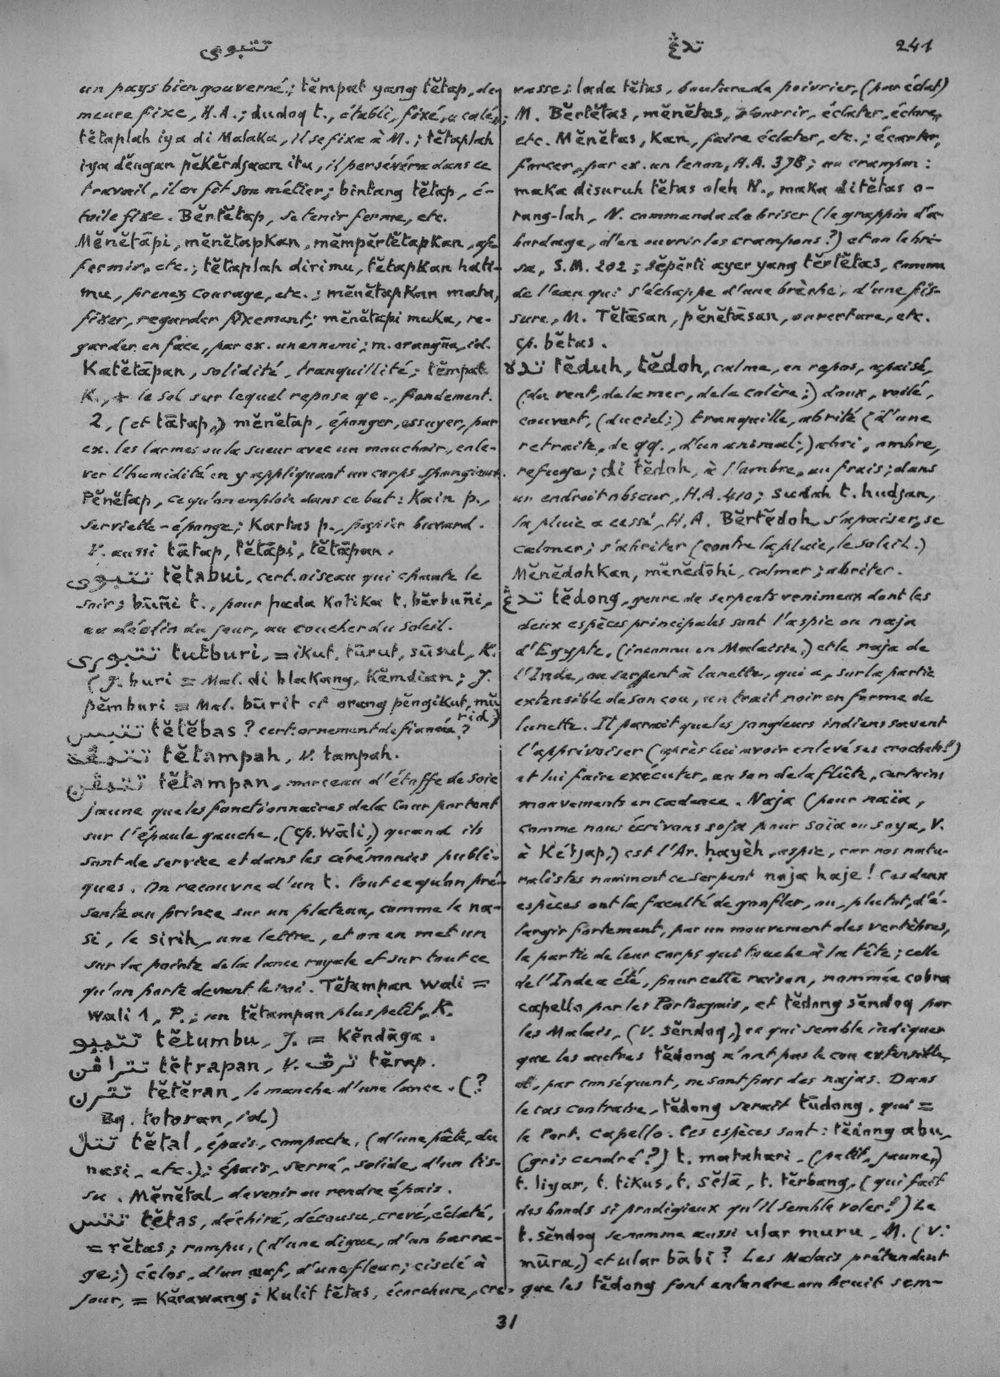 تتبوي
تدڠ
241
un pays bien gouverné; tĕmpat yang tĕtap, de-
meure fixe, H.A.; dudoq t., établi, fixé, a calé;
tĕtaplah iya di Malaka, il se fixe à M.; tĕtaplah
iya dĕngan pĕkĕrdjaan itu, il persévéra dans ce
travail, il en fit son métier; bintang tĕtap, é-
toile fixe. Bĕrtĕtap, se tenir ferme, etc.
Mĕnĕtāpi, mĕnĕtapkan, mĕmpĕrtĕtapkan, af-
fermir, etc.; tĕtaplah dirimu, tĕtapkan hati-
mu, prenez courage, etc.; mĕnĕtapkan mata,
fixer, regarder fixement; mĕnĕtapi muka, re-
garder en face, par ex. un ennemi; m. orangña, id.
Katĕtāpan, solidité, tranquillité; tĕmpat
K., le sol sur lequel repose qc., fondement.
2, (et tātap,) mĕnĕtap, éponger, essuyer, par
ex. les larmes ou la sueur avec un mouchoir, enle-
ver l'humidité en y appliquant un corps spongieux.
Pĕnĕtap, ce qu'on emploie dans ce but: Kain p.,
serviette-éponge; Kartas p., papier buvard.
V. aussi tātap, tĕtāpi, tĕtāpan.
تتبوي tĕtabui, cert. oiseau qui chante le
soir; būñi t., pour pada Kotika t. bĕrbuñi,
au déclin du jour, au coucher du soleil.
تتبوري tutburi, = ikut, tūrut, sūsul, K.
(J. buri = Mal. di blakang, Kĕmdian; J.
pĕmburi = Mal. būrit et orang pĕngikut, mū
rid,)
تتبس tĕtĕbas? cert. ornement de fiancée?
تتمڤه tĕtampah, V. tampah.
تتمڤن tĕtampan, morceau d'étoffe de soie
jaune que les fonctionnaires de la Cour portent
sur l'épaule gauche, (cp. Wāli,) quand ils
sont de service et dans les cérémonies publi-
ques. On recouvre d'un t. tout ce qu'on pré-
sente au prince sur un plateau, comme le na-
si, le sirih, une lettre, et on en met un
sur la pointe de la lance royale et sur tout ce
qu'on porte devant le roi. Tĕtampan wali =
wali 1, P.; un tĕtampan plus petit, K.
تتمبو tĕtumbu, J. = Kĕndāga.
تتراڤن tĕtrapan, V. ترڤ tĕrap.
تترن tĕtĕran, le manche d'une lance. (?
Bq. totoran, id.)
تتل tĕtal, épais, compacte, (d'une pâte, du
nasi, etc.); épais, serré, solide, d'un tis-
su. Mĕnĕtal, devenir ou rendre épais.
تتس tĕtas, déchiré, décousu, crevé, éclaté,
= rĕtas; rompu, (d'une digue, d'un barra-
ge;) éclos, d'un œuf, d'une fleur; ciselé à
jour, = Kĕrawang; Kulit tĕtas, écorchure, cre-
vasse; lada tĕtas, bouture de poivrier, (par éclat)
M. Bĕrtĕtas, mĕnĕtas, s'ouvrir, éclater, éclore,
etc. Mĕnĕtas, Kan, faire éclater, etc.; écarter,
forcer, par ex. un tenon, H.A. 378; un crampon:
maka disuruh tĕtas oleh N., maka ditĕtas o-
rang-lah, N. commanda de briser (le grappin d'a-
bordage, d'en ouvrir les crampons?) et on le bri-
sa, S.M. 202; sĕpĕrti ayer yang tĕrtĕtas, comme
de l'eau qui s'échappe d'une brèche, d'une fis-
sure, M. Tĕtāsan, pĕnĕtāsan, ouverture, etc.
Cp. bĕtas.
تده tĕduh, tĕdoh, calme, en repos, apaisé,
(du vent, de la mer, de la colère;) doux, voilé,
couvert, (du ciel;) tranquille, abrité (d'une
retraite, de qq., d'un animal;) abri, ombre,
refuge; di tĕdoh, à l'ombre, au frais; dans
un endroit obscur, H.A. 410; sudah t. hudjan,
la pluie a cessé, H.A. Bĕrtĕdoh, s'apaiser, se
calmer; s'abriter (contre la pluie, le soleil.)
Mĕnĕdohkan, mĕnĕdōhi, calmer; abriter.
تدڠ tĕdong, genre de serpents venimeux dont les
deux espèces principales sont l'aspic ou naja
d'Egypte, (inconnu en Malaisie,) et le naja de
l'Inde, ou serpent à lunette, qui a, sur la partie
extensible de son cou, un trait noir en forme de
lunette. Il paraît que les jongleurs indiens savent
l'apprivoiser (après lui avoir enlevé ses crochets!)
et lui faire exécuter, au son de la flûte, certains
mouvements en cadence. Naja (pour naïa,
comme nous écrivons soja pour soïa ou soya, V.
à Kétjap,) est l'Ar. ḥayèh, aspic, car nos natu-
ralistes nomment ce serpent naja haje! Ces deux
espèces ont la faculté de gonfler, ou, plutôt, d'é-
largir fortement, par un mouvement des vertèbres,
la partie de leur corps qui touche à la tête; celle
de l'Inde a été, pour cette raison, nommée cobra
capello par les Portugais, et tĕdong sĕndoq par
les Malais, (V. sĕndoq,) ce qui semble indiquer
que les autres tĕdong n'ont pas le cou extensible
et, par conséquent, ne sont pas des najas. Dans
le cas contraire, tĕdong serait tūdong, qui =
le Port. capello. Ces espèces sont: tĕdong abu,
(gris cendré?) t. matahari, (petit, jaune,)
t. liyar, t. tikus, t. sĕlā, t. tĕrbang, (qui fait
des bonds si prodigieux qu'il semble voler!) Le
t. sĕndoq se nomme aussi ular muru, M. (V.
mūra,) et ular bābi? Les Malais prétendent
que les tĕdong font entendre un bruit sem-
31